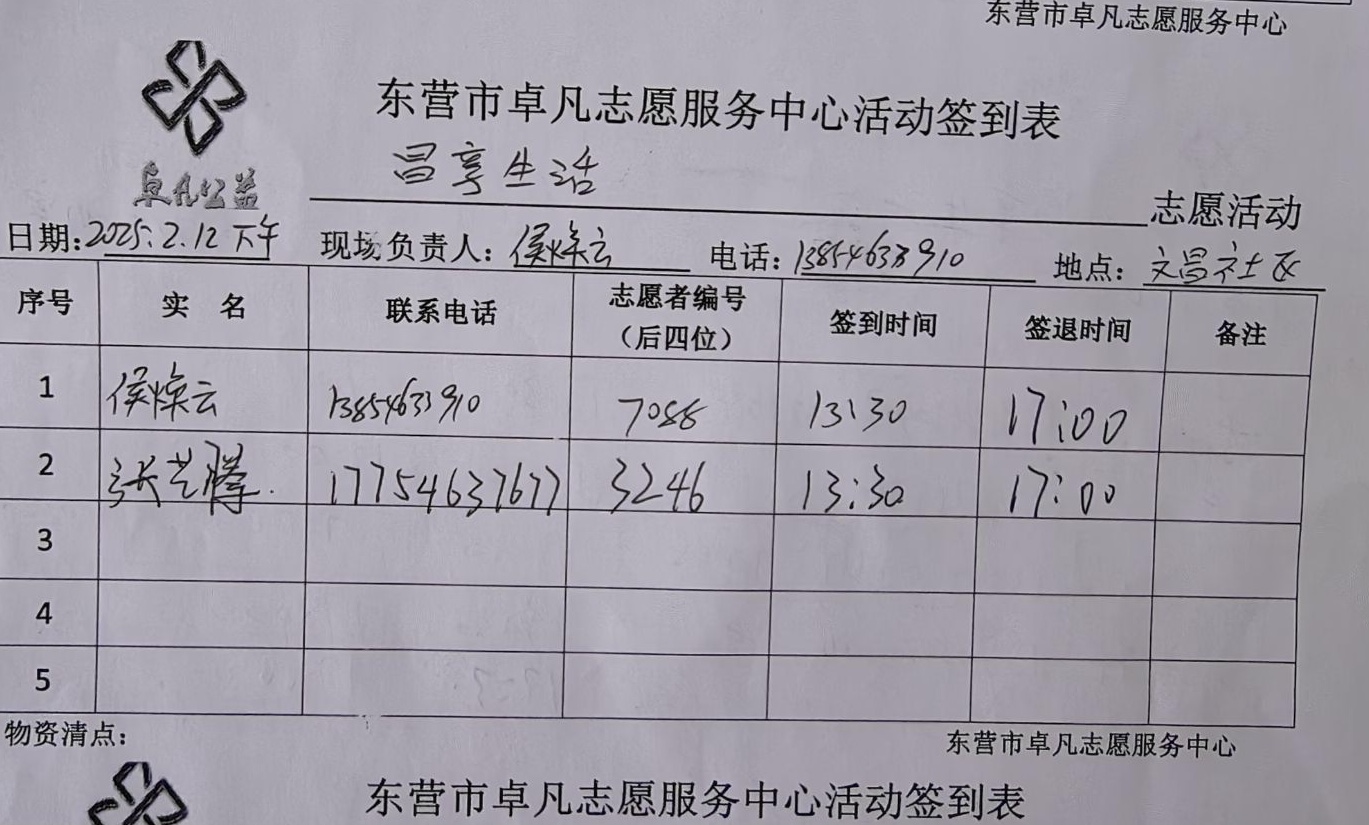 东营市卓凡志愿服务中心
东营市卓凡志愿服务中心活动签到表
卓凡公益
昌享生活 志愿活动
日期:2025.2.12下午 现场负责人:侯焕云 电话:13854633910 地点:文昌社区
序号 实 名 联系电话 志愿者编号(后四位) 签到时间 签退时间 备注
1 侯焕云 13854633910 7088 13:30 17:00
2 张艺腾. 17754637677 3246 13:30 17:00
3
4
5
物资清点: 东营市卓凡志愿服务中心
东营市卓凡志愿服务中心活动签到表